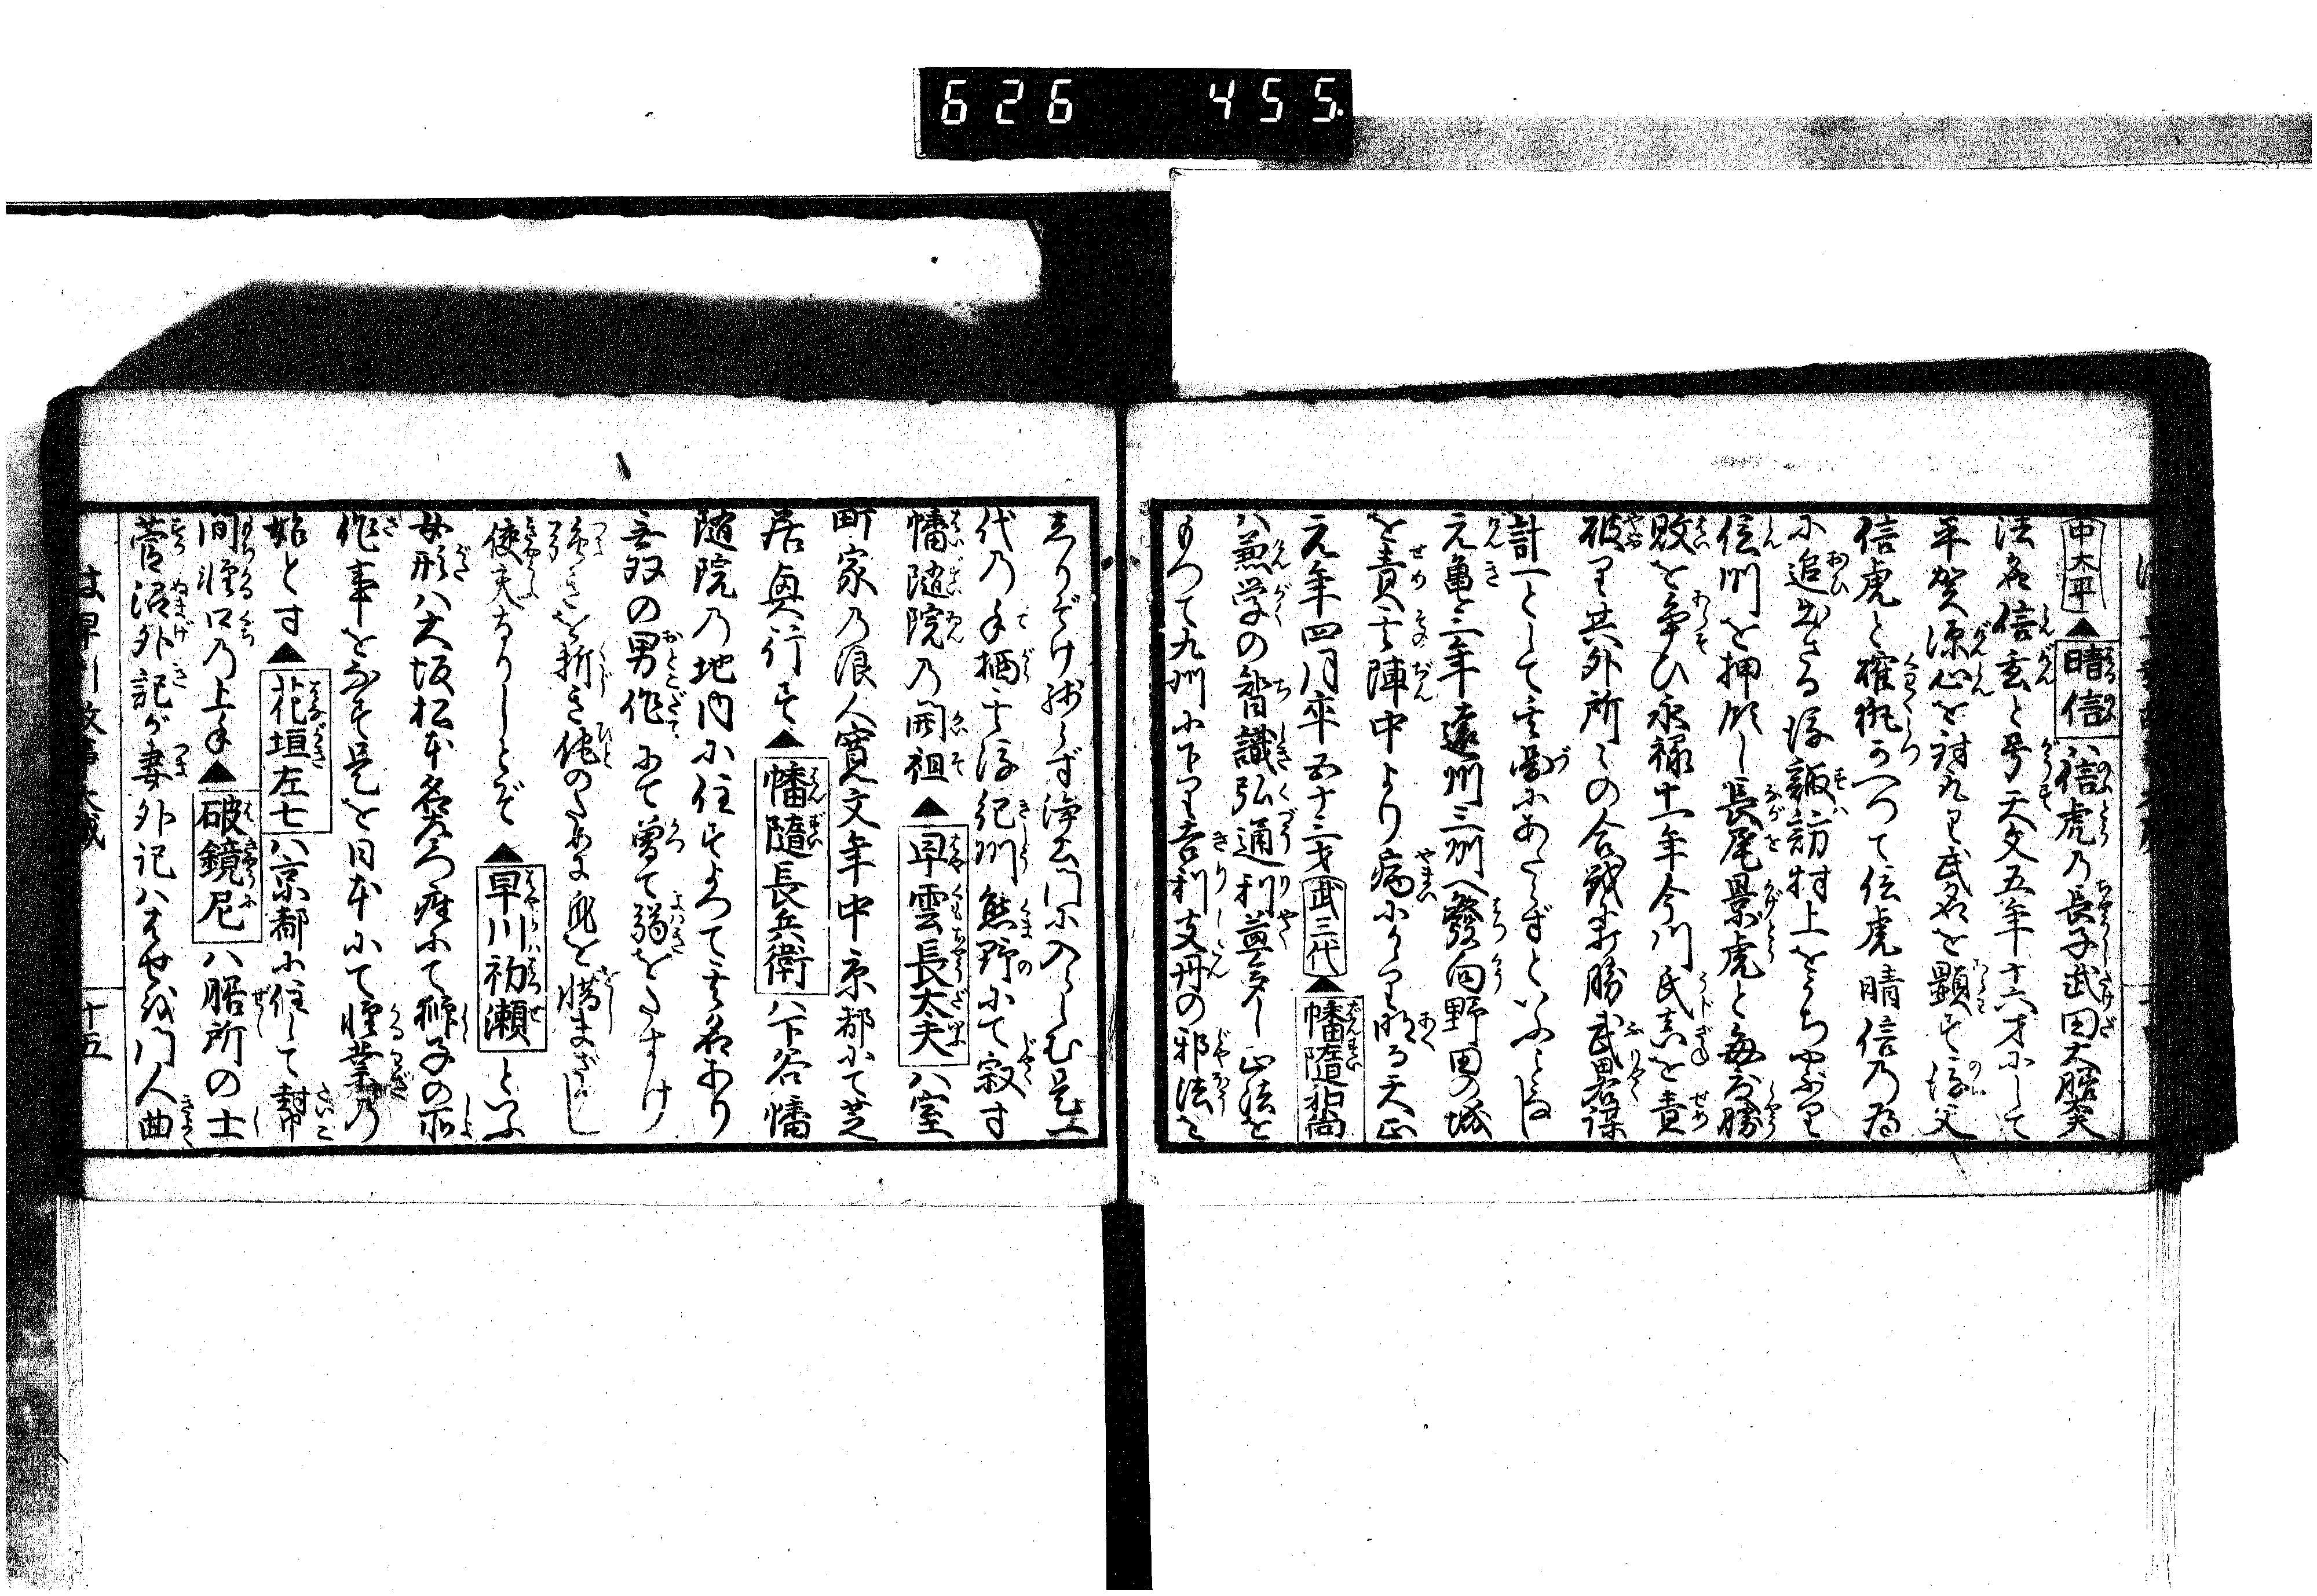 626 455
申太平▲晴信ハ信虎乃長子武田大膳大夫
法名信玄と号天文五年十六才にして
平賀源心を討九り武名を顕す後父
信虎と確執かつて信虎晴信乃為
に追出さる後諏訪村上をうちやぶり
信州を押領し長尾景虎と毎度勝
敗を争ひ永禄十一年今川氏真を責
破り其外所〻の合戦不勝武略謀
計一として其図にあたらずといふことなし
元亀三年遠州三州へ發向野田の城
を責其陣中より病にかゝり明る天正
元年四月卒五十三才武三代▲幡隨和尚
ハ兼学の智識弘通利益多し正法を
もつて九州に下り吉利支丹の邪法を
しりぞけ残らず浄土門に入らしむ是一
代の手柄其後紀州熊野にて寂す
幡随院乃開祖▲早雲長太夫ハ室
町家乃浪人寛文年中京都にて芝
居興行す▲幡隨長兵衛ハ下谷幡
随院乃地内に住すよつて其名あり
無双の男作にて曽て弱をたすけ
強きを折き他のために死を惜まざりし
侠夫なりしとぞ▲早川初瀬といふ
女形ハ大坂松本名左衛門座にて獅子の所
作事をなす是を日本にて軽業乃
始とす▲花垣左七ハ京都に住して封
間軽口乃上手▲破鏡尼ハ膳所の士
菅沼外記が妻外記ハはせを門人曲
は早引故事大成
十五